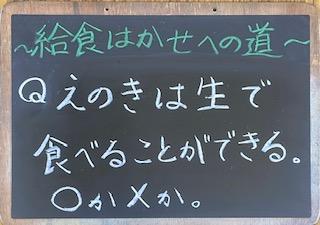 ~給食はかせへの道~
Qえのきは生で
食べることができる。
○か×か。